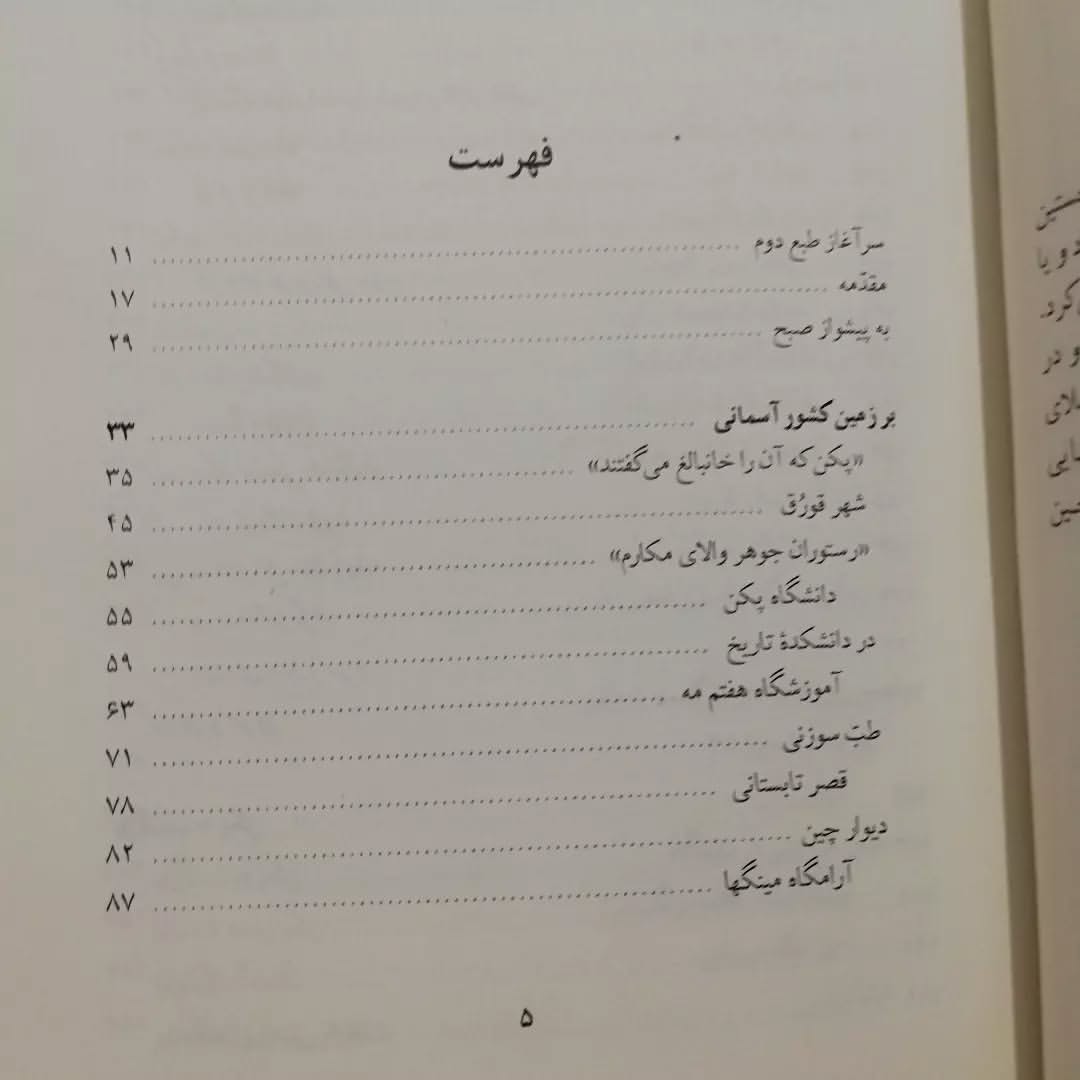 فهرست
سرآغاز طبع دوم ........ ۱۱
مقدّمه ........ ۱۷
به پیشواز صبح ........ ۲۹
بر زمین کشور آسمانی ........ ۳۳
«پکن که آن را خانبالغ می‌گفتند» ........ ۳۵
شهر قورُق ........ ۴۵
«رستوران جوهر والای مکارم» ........ ۵۳
دانشگاه پکن ........ ۵۵
در دانشکدهٔ تاریخ ........ ۵۹
آموزشگاه هفتم مه ........ ۶۳
طبّ سوزنی ........ ۷۱
قصر تابستانی ........ ۷۸
دیوار چین ........ ۸۲
آرامگاه مینگها ........ ۸۷
۵
د و یا
کرد.
و در